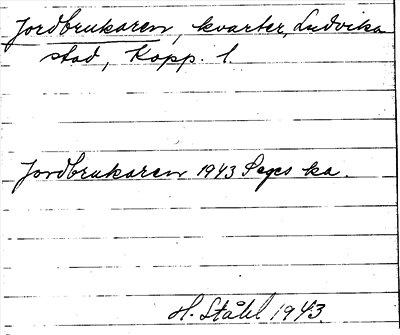 Jordbrukaren, kvarter, Ludvika
stad, Kopp. l.
Jordbrukaren 1943 Seges ka.
H. Ståhl 1943